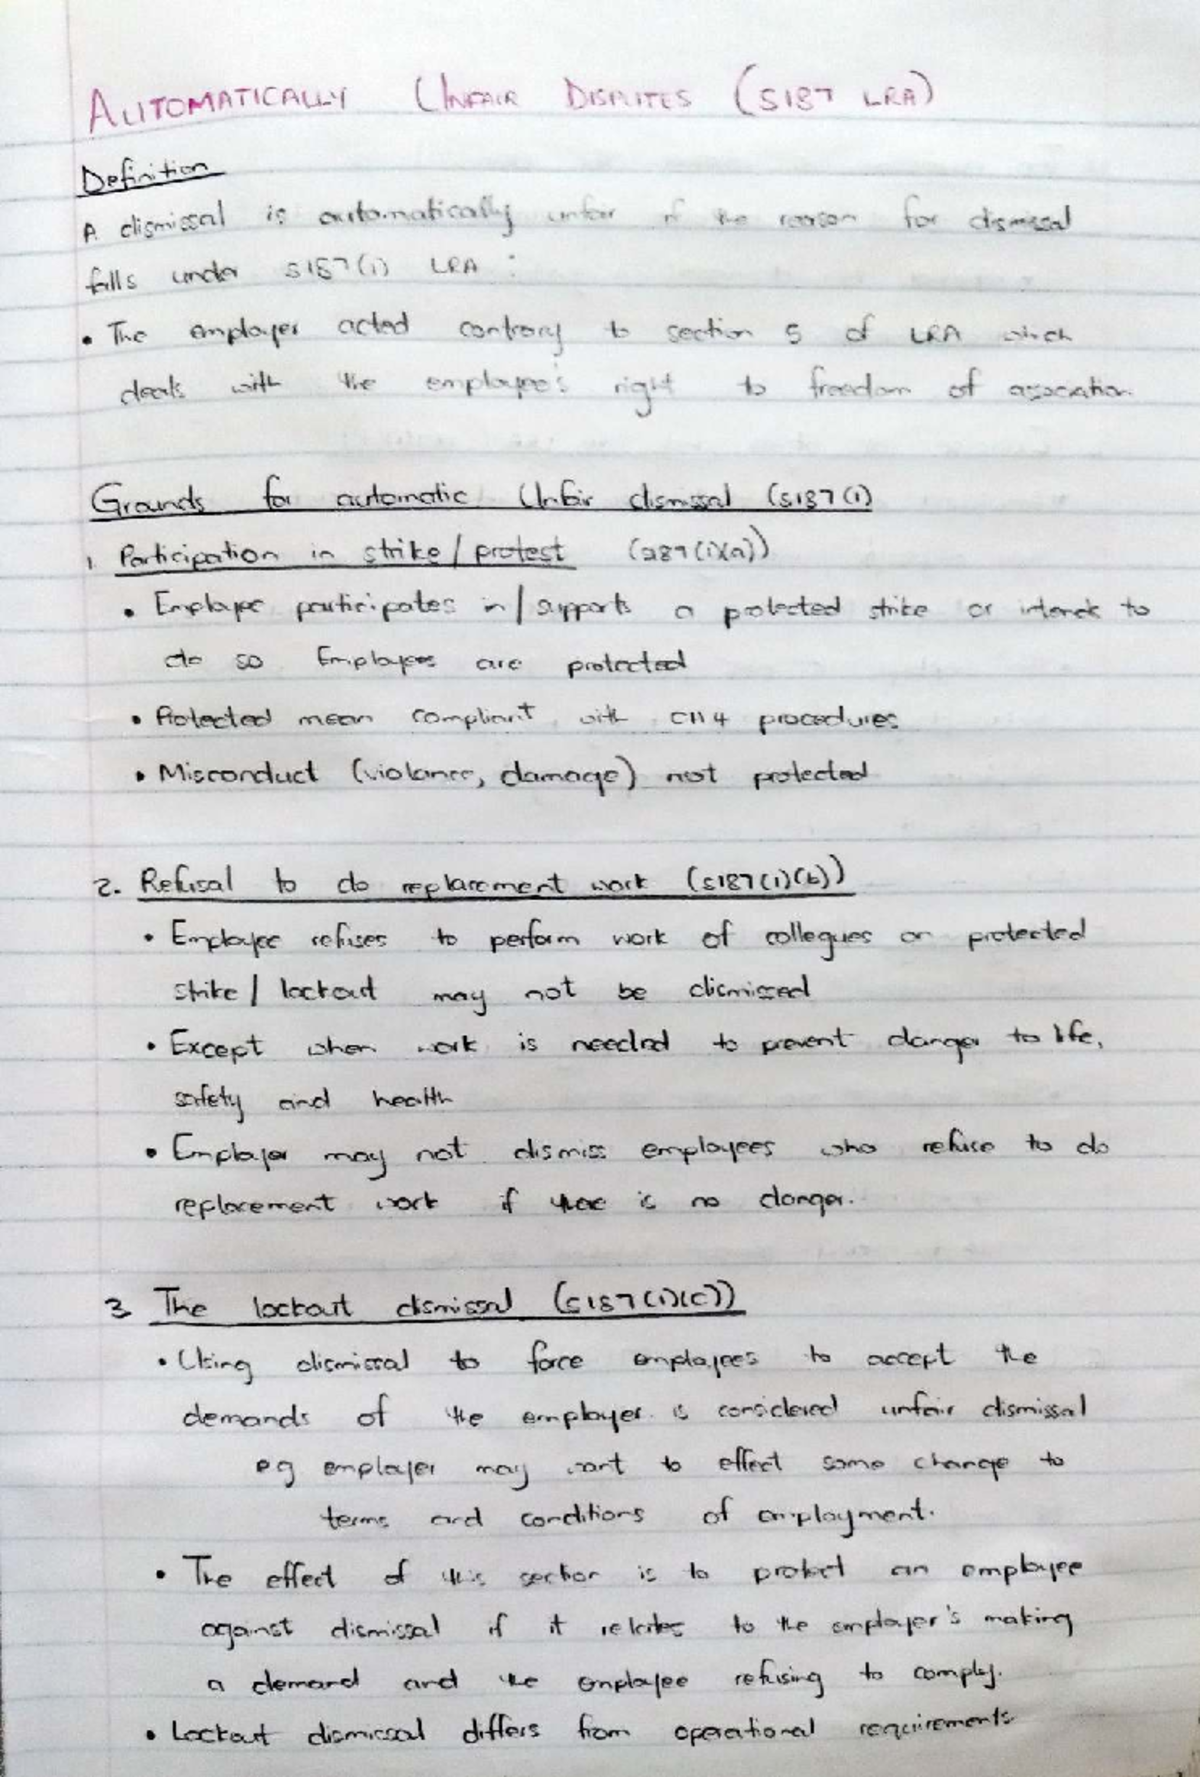 AUTOMATICALLY UNFAIR DISPUTES (S187 LRA)
Definition
A dismissal is automatically unfair if the reason for dismissal
falls under S187(1) LRA :
• The employer acted contrary to section 5 of LRA which
deals with the employee's right to freedom of association.
Grounds for automatic Unfair dismissal (S187(1)
1. Participation in strike/protest (287(1)(a))
• Employee participates in/supports a protected strike or intends to
do so Employees are protected
• Protected mean compliant with CH4 procedures
• Misconduct (violance, damage) not protected
2. Refusal to do replacement work (S187(1)(b))
• Employee refuses to perform work of collegues on protected
strike/lockout may not be dismissed
• Except when work is needed to prevent danger to life,
safety and health
• Employer may not dismiss employees who refuse to do
replacement work if there is no danger.
3 The lockout dismissal (S187(1)(c))
• Using dismissal to force employees to accept the
demands of the employer is considered unfair dismissal
eg employer may want to effect some change to
terms and conditions of employment.
• The effect of this section is to protect an employee
against dismissal if it relates to the employer's making
a demand and the employee refusing to comply.
• Lockout dismissal differs from operational requirements